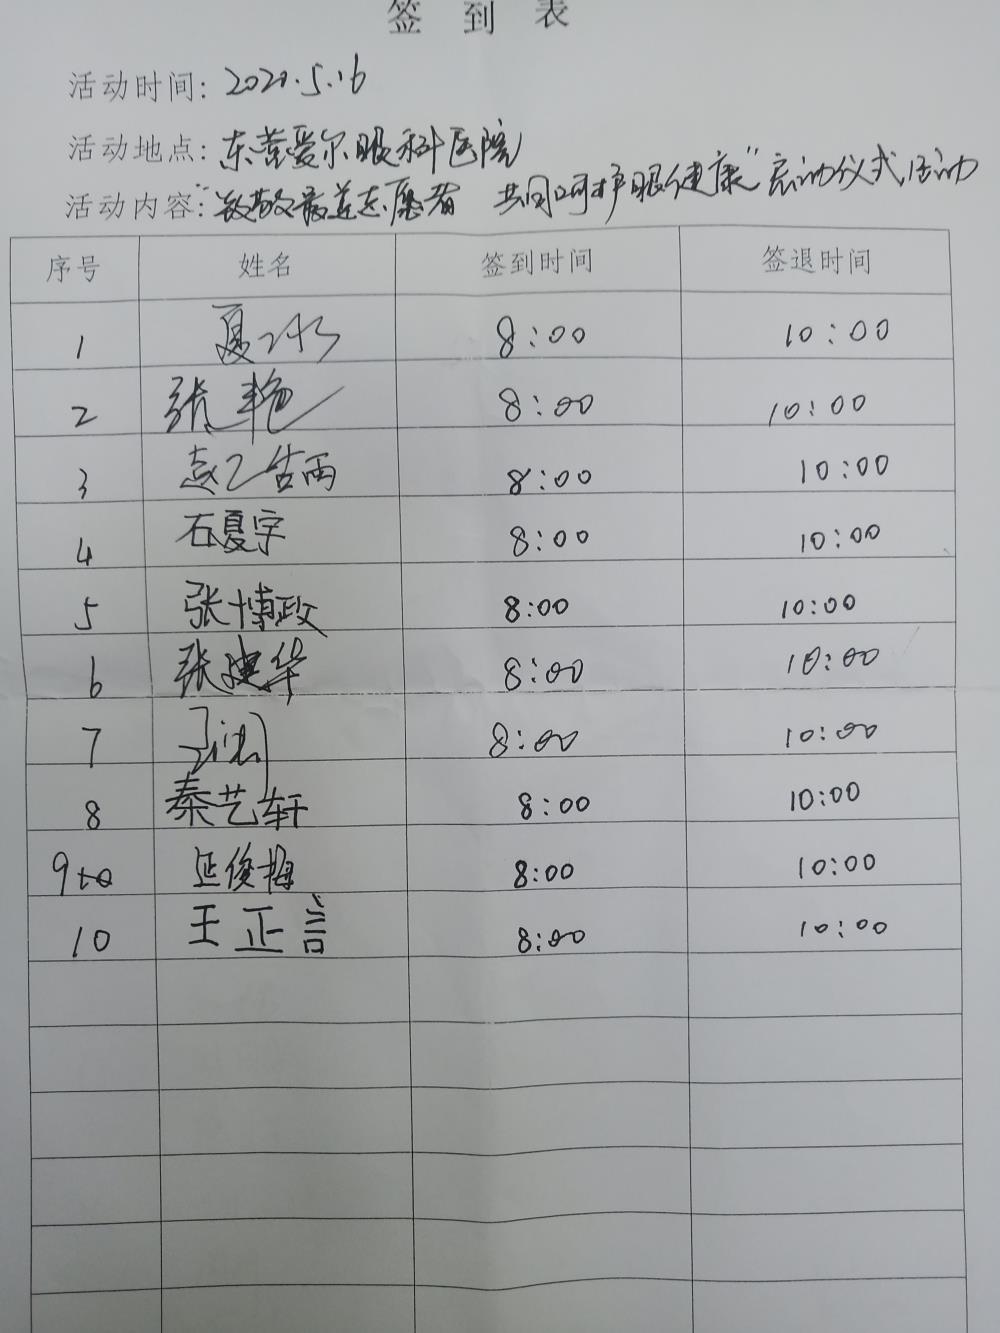 签 到 表
活动时间: 2021.5.16
活动地点: 东营爱尔眼科医院
活动内容: "致敬最美志愿者 共同呵护眼健康"启动仪式活动
序号 姓名 签到时间 签退时间
1 夏 8:00 10:00
2 张艳 8:00 10:00
3 8:00 10:00
4 石夏宇 8:00 10:00
5 张博政 8:00 10:00
6 张建华 8:00 10:00
7 8:00 10:00
8 秦艺轩 8:00 10:00
9 延俊梅 8:00 10:00
10 王正言 8:00 10:00